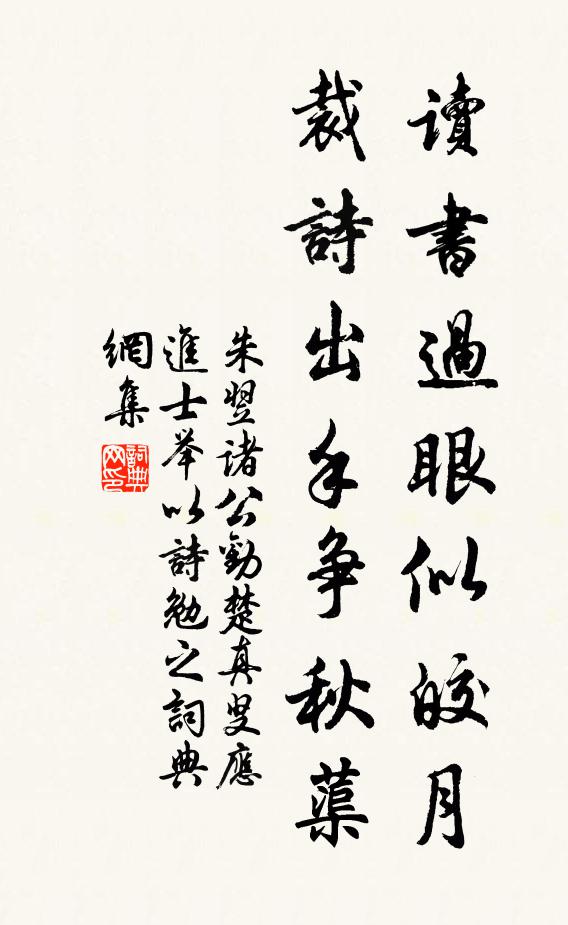 讀書過眼似皎月
裁詩出手争秋蕖
朱翌諸公勸楚真叟應
進士举以詩勉之詞典
網集
詞典
网印